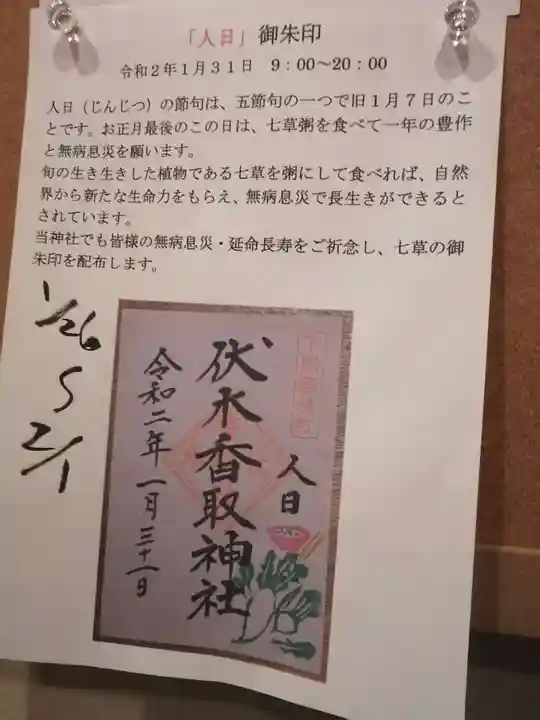 「人日」御朱印
令和2年1月31日 9:00~20:00
人日(じんじつ)の節句は、五節句の一つで旧1月7日のこ
とです。お正月最後のこの日は、七草粥を食べて一年の豊作
と無病息災を願います。
旬の生き生きした植物である七草を粥にして食べれば、自然
界から新たな生命力をもらえ、無病息災で長生きができると
されています。
当神社でも皆様の無病息災・延命長寿をご祈念し、七草の御
朱印を配布します。
1/26
〜
2/1
人日
伏木香取神社
令和二年一月三十一日